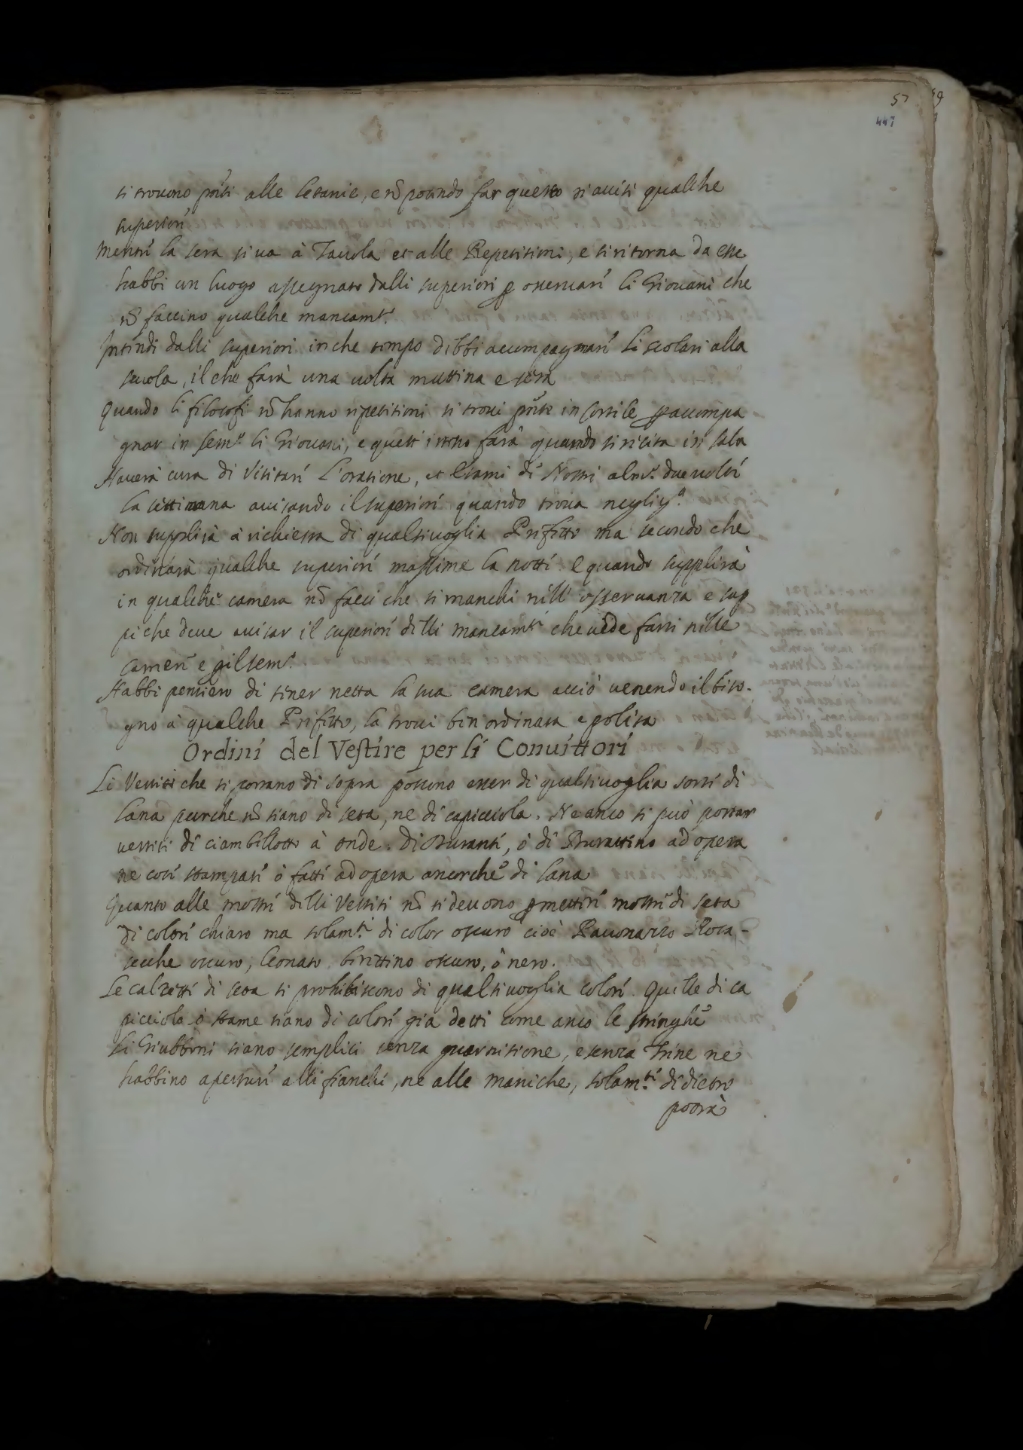 57 59
447
si trovono pñti alle letanie, e nõ potendo far questo si aviti qualche
superiorí
Mentrí la sera si va à Tavola et alle Repetitioni, e si ritorna da esse
habbi un luogo assegnato dalli superiori ꝑ osservarí li Giovani che
nõ faccino qualche mancamᵗᵒ
Intendi dalli superiori in che tempo debbi accompagnarí li scolari alla
scuola, il che farà una volta mattina e sera
Quando li filosofi nõ hanno ripetitioni si trovi pñte in Cortile ꝑ accompa
gnar in semᵉ li Giovani, e questo istesso farà quando si recita in sala
Haverà cura di visitarí l'oratione, et Esami de Nostri almᵒ. due voltí
la settimana avisando il superiorí quando trova negligᵃ.
Non supplisca à richiesta di qualsivoglia Prefetto ma secondo che
ordinarà qualche superiorí massime la notte e quando supplirà
in qualche camera nõ facci che si manchi nell' osservanza e sap
pi che deve avisar il superiorí delli mancamᵗⁱ che vede farsi nelle
camerí
Habbi pensiero di tener netta la sua camera acciò venendo il biso-
gno à qualche Prefetto, la trovi ben ordinata e polita
Ordiní del Vestire per li Convittorí
Li Vestiti che si portano di sopra possono esser di qualsivoglia sorte di
lana purche nõ siano di seta, ne di capicciola. Ne anco si può portar
vestiti di ciambellotto à onde. di Buratti, ò di Burattino ad opera
ne così stampati ò fatti ad opera ancorche di lana
Quanto alle mostrí delli Vestiti nõ si devono ꝑmetterí mostrí di seta
di colorí chiaro ma solamᵗᵉ di color oscuro cioè Pavonazzo Rosa-
secche oscuro, leonato, berettino oscuro, ò nero.
Le calzetti di seta si prohibiscono di qualsivoglia colorí. Quelle di ca
picciola ò stame siano di colorí già detti come anco le stringhe
Li Giubboni siano semplici senza guarnitione, e senza trine ne
habbino aperturí alli fianchi, ne alle maniche, solamᵗᵉ di dietro
potrà